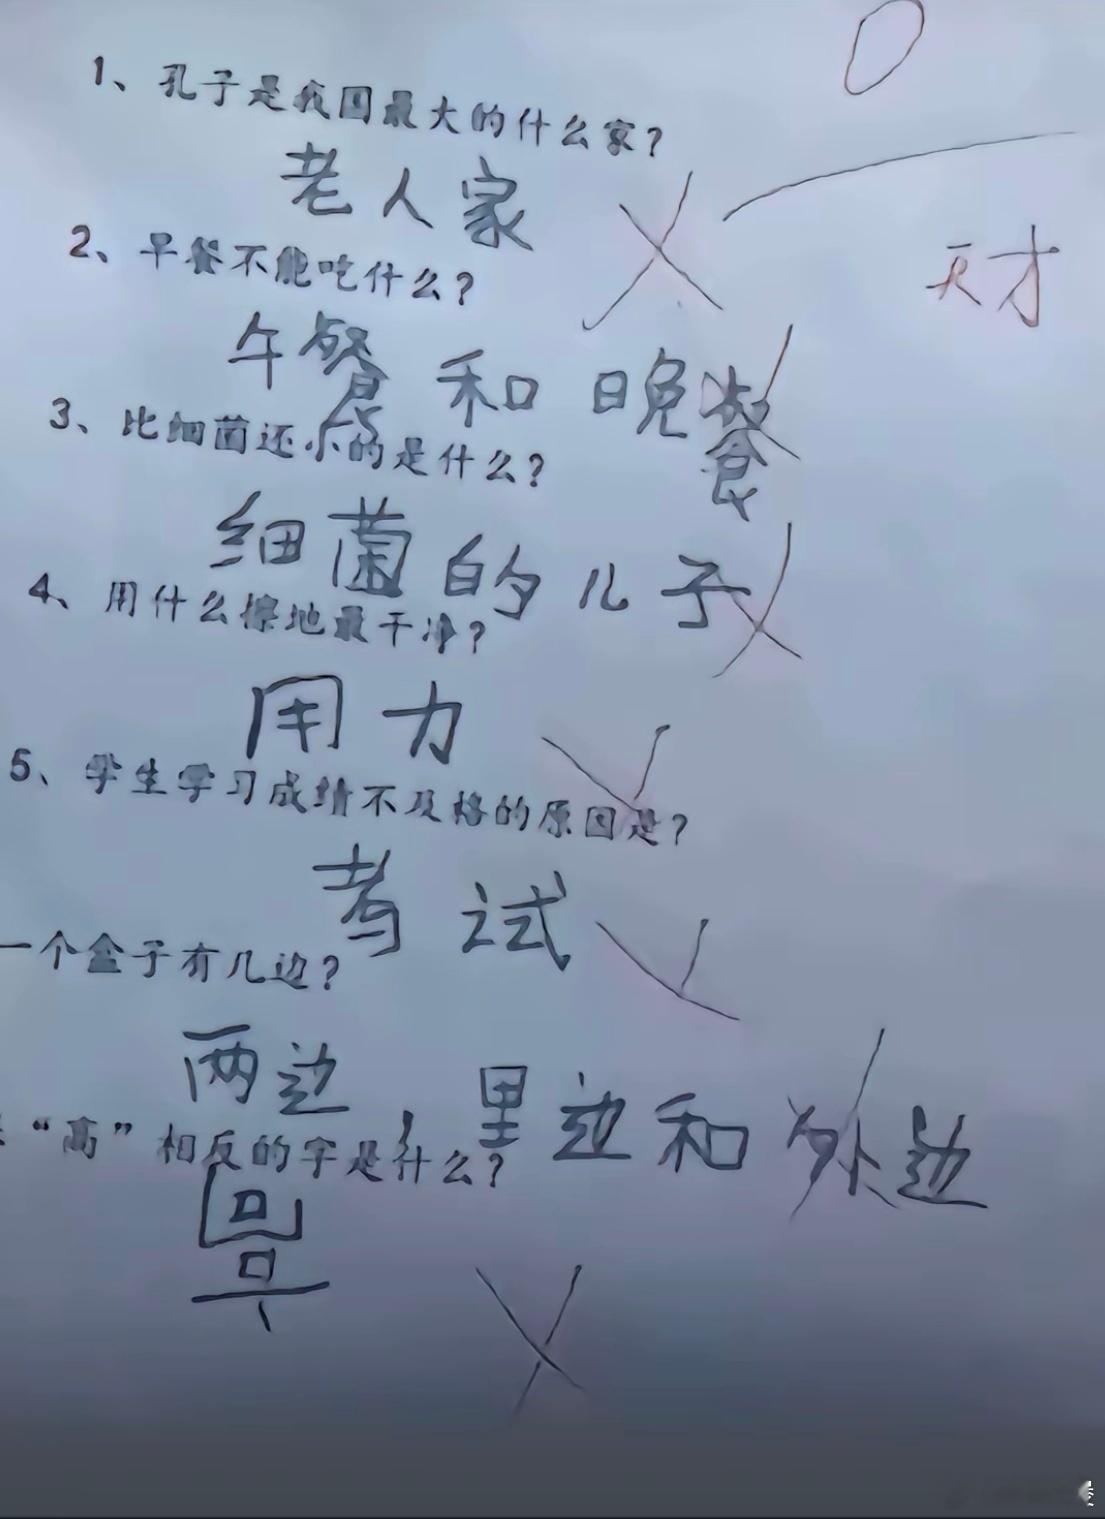 1、孔子是我国最大的什么家？
老人家
天才
2、早餐不能吃什么？
午餐和晚餐
3、比细菌还小的是什么？
细菌的儿子
4、用什么擦地最干净？
用力
5、学生学习成绩不及格的原因是？
考试
一个盒子有几边？
两边，里边和外边
“高”相反的字是什么？